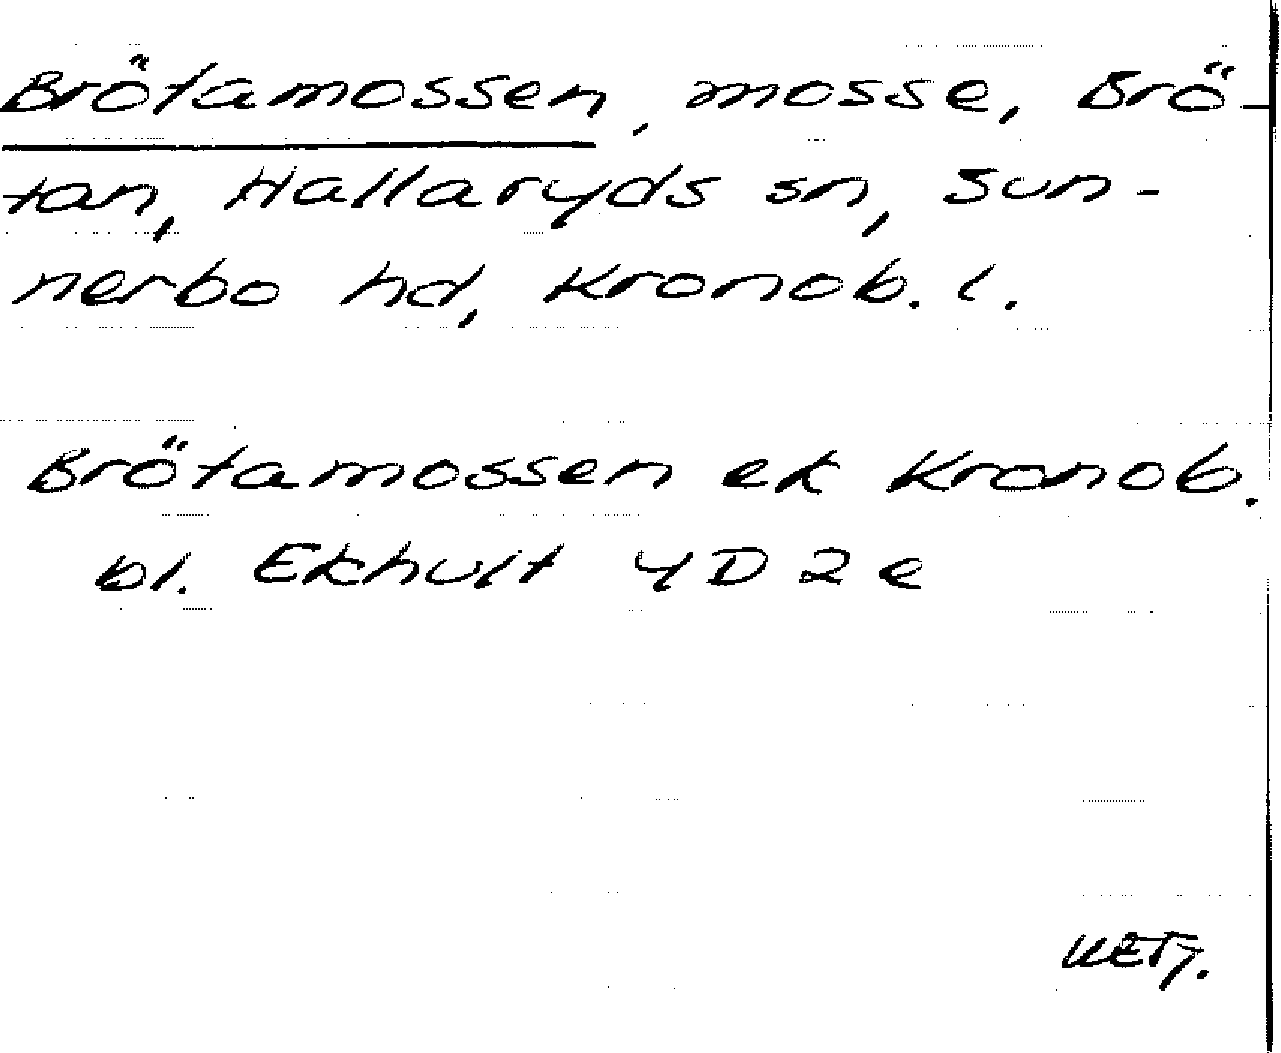 Brötamossen, mosse, Brö-
tan, Hallaryds sn, Sun-
nerbo hd, Kronob. l.
Brötamossen ek Kronob.
bl. Ekhult 4D 2e